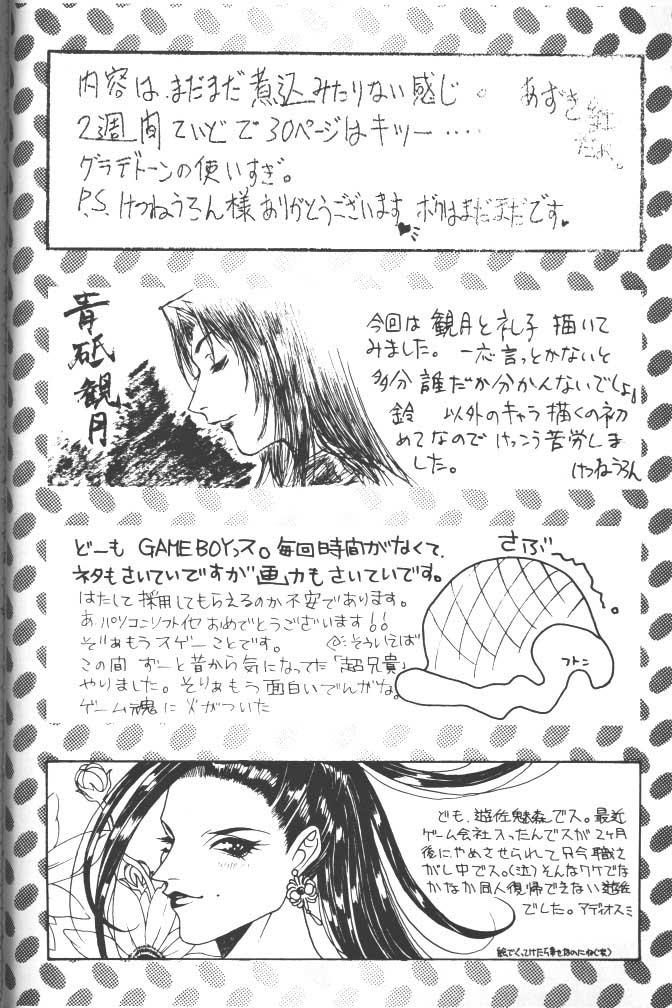 内容は、まだまだ煮込みたりない感じ。
2週間ていどで30ページはキツー‥‥
グラデトーンの使いすぎ。
P.S. けつねうろん様ありがとうございます ボクはまだまだです♥
あずき
だよ。
青砥観月
今回は観月と礼子描いて
みました。一応言っとかないと
多分誰だか分かんないでしょ。
鈴 以外のキャラ描くの初
めてなのでけっこう苦労しま
した。
けつねうろん
どーも GAMEBOYっス。毎回時間がなくて、
ネタもさいていですが画力もさいていです。
はたして採用してもらえるのか不安であります。
あ、パソコンソフトイヤおめでとうございます!!
そりぁもうスゲーことです。
そういえば
この間 ずーと昔から気になってた「超兄貴」
やりました。そりぁもう面白いでんがな。
ゲーム魂に火がついた
さぶー
フトン
ども、遊佐魅森でス。最近
ゲーム会社入ったんでスが2ヶ月
後にやめさせられて只今職さ
がし中でス。(泣)そんなワケでな
かなか同人復帰できない遊佐
でした。アディオス